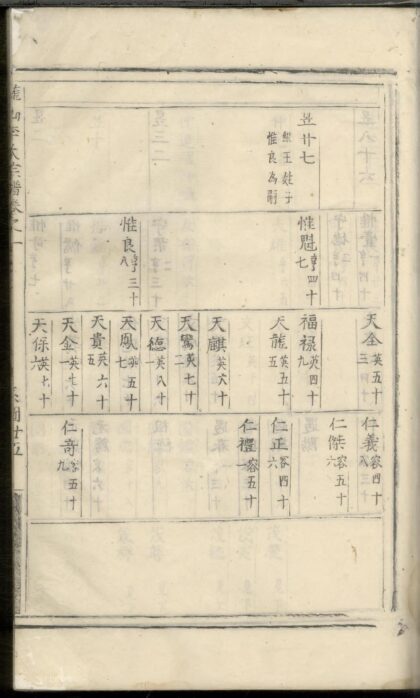 昱廿七
繼王姓子
惟良為嗣
惟魁亨四十七
惟良亨三十八
天全英五十三
福祿英四十九
天龍英五十五
天麒英六十
天鸞英七十二
天德英八十一
天鳳英五十七
天貴英六十五
天金英七十一
天保英七十六
仁義容四十八
仁傑容五十六
仁正容四十六
仁禮容五十一
仁奇容五十九
大宗譜卷之一
系圖廿五